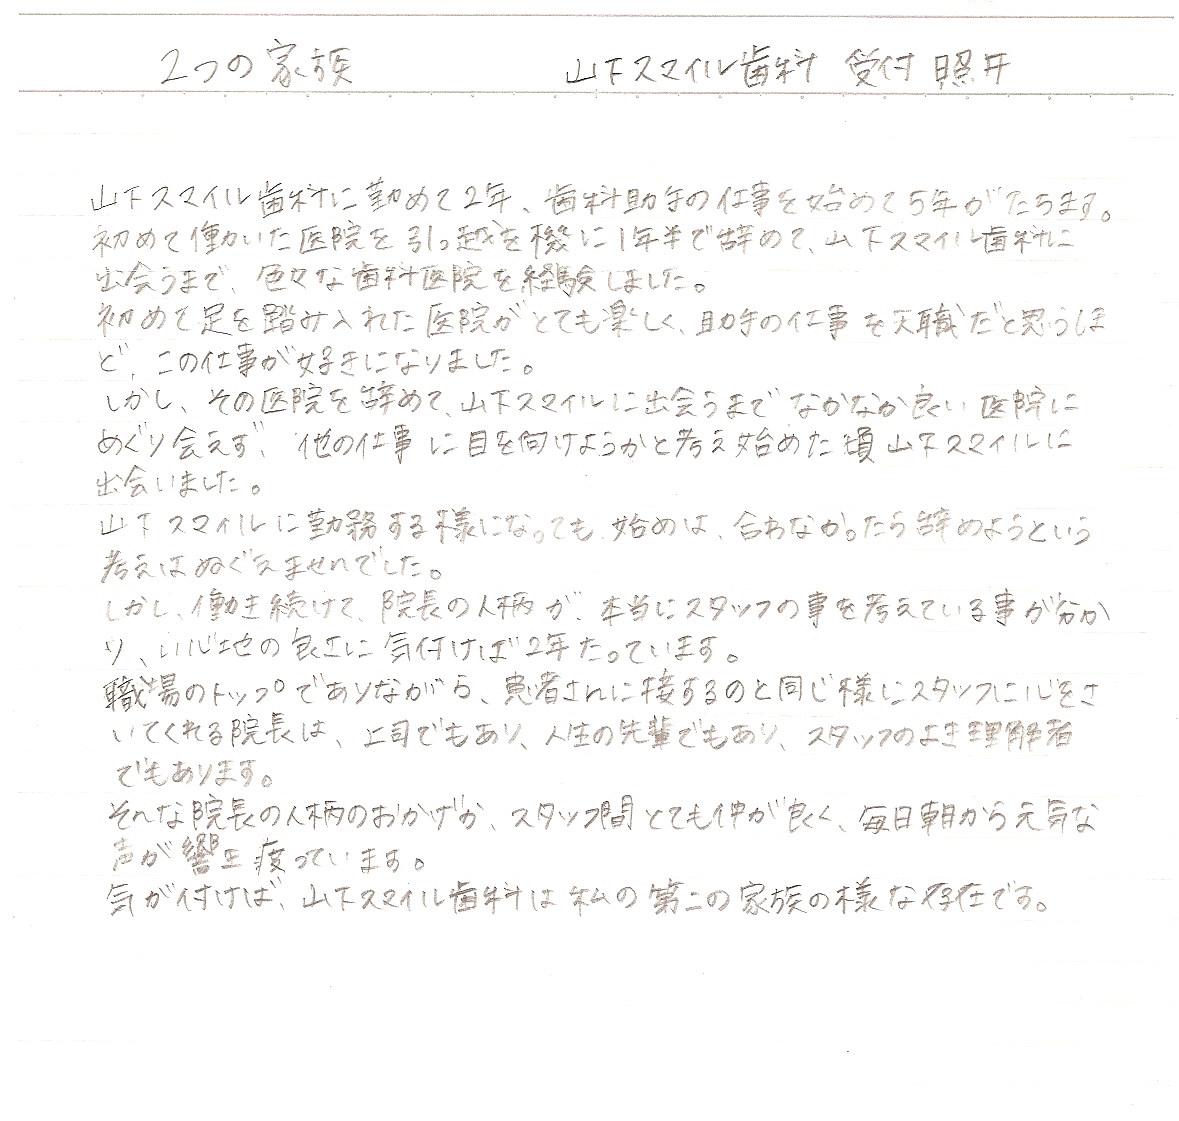 2つの家族 山下スマイル歯科 受付 照井
山下スマイル歯科に勤めて2年、歯科助手の仕事を始めて5年がたちます。
初めて働いた医院を引っ越を機に1年半で辞めて、山下スマイル歯科に
出会うまで、色々な歯科医院を経験しました。
初めて足を踏み入れた医院がとても楽しく、助手の仕事を天職だと思うほ
ど、この仕事が好きになりました。
しかし、その医院を辞めて、山下スマイルに出会うまでなかなか良い医院に
めぐり会えず、他の仕事に目を向けようかと考え始めた頃山下スマイルに
出会いました。
山下スマイルに勤務する様になっても始めは、合わなかったら辞めようという
考えはぬぐえませんでした。
しかし、働き続けて、院長の人柄が、本当にスタッフの事を考えている事が分か
り、いい心地の良さに気付けば2年たっています。
職場のトップでありながら、患者さんに接するのと同じ様にスタッフに心をさ
いてくれる院長は、上司でもあり、人生の先輩でもあり、スタッフのよき理解者
でもあります。
そんな院長の人柄のおかげか、スタッフ間とても仲が良く、毎日朝から元気な
声が響き渡っています。
気が付けば、山下スマイル歯科は私の第二の家族の様な存在です。